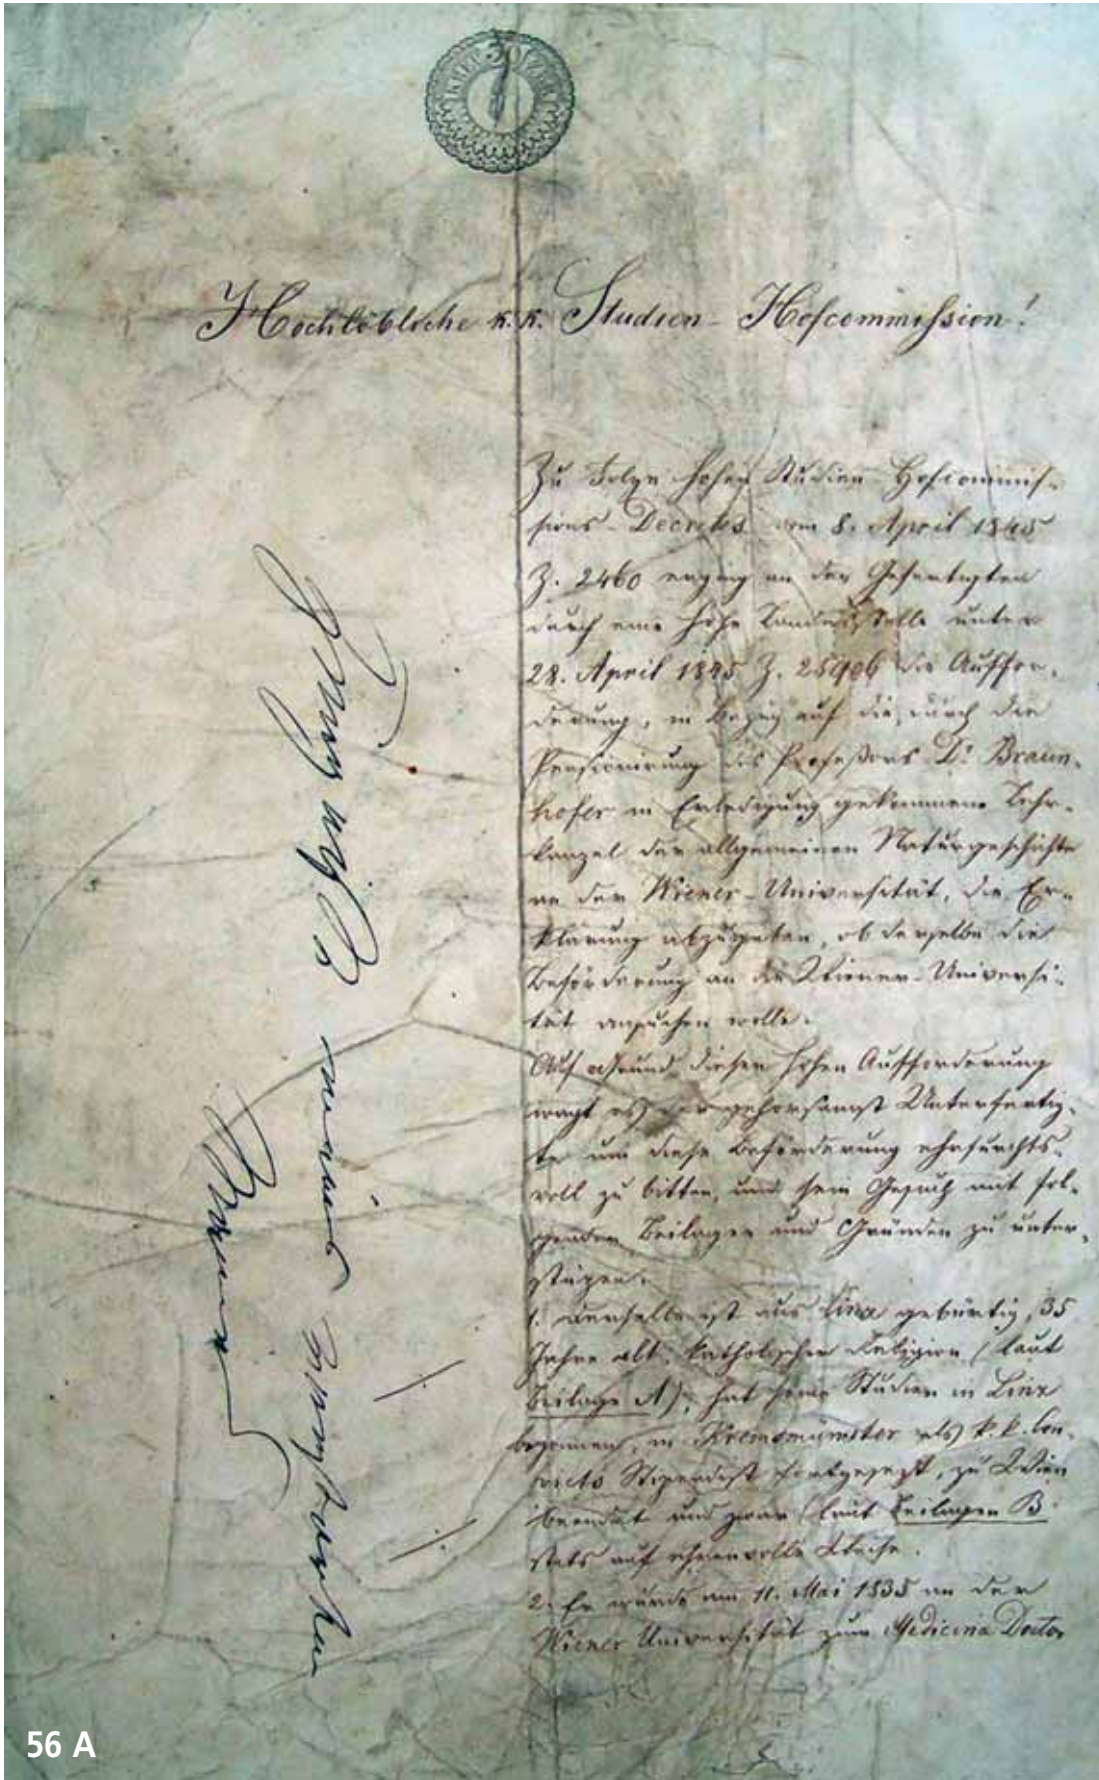 30
Hochlöbliche k. k. Studien-Hofcommission!
Zu Folge hohen Studien-Hofcommis-
sions-Decretes vom 8. April 1845
Z. 2460 erging an den Gefertigten
durch eine hohe Landesstelle unter
28. April 1845 Z. 25906 die Auffor-
derung, in Bezug auf die, durch die
Pensionirung des Profeßors Dr. Braun-
hofer in Erledigung gekommene Lehr-
kanzel der allgemeinen Naturgeschichte
an der Wiener-Universität, die Er-
klärung abzugeben, ob derselbe die
Beförderung an die Wiener-Universi-
tät ansuchen wolle.
Auf Grund dieser hohen Aufforderung
wagt es der gehorsamst Unterfertig-
te um diese Beförderung ehrfurchts-
voll zu bitten, und sein Gesuch mit fol-
genden Beilagen und Gründen zu unter-
stützen.
1. Derselbe ist aus Linz gebürtig, 35
Jahre alt, katholischer Religion (laut
Beilage A), hat seine Studien in Linz
begonnen, in Kremsmünster als k. k. Con-
victs Stipendist fortgesetzt, zu Wien
beendet und zwar (laut Beilagen B
stets auf ehrenvolle Weise.
2. Er wurde am 11. Mai 1835 an der
Wiener Universität zum Medicina Doctor
56 A